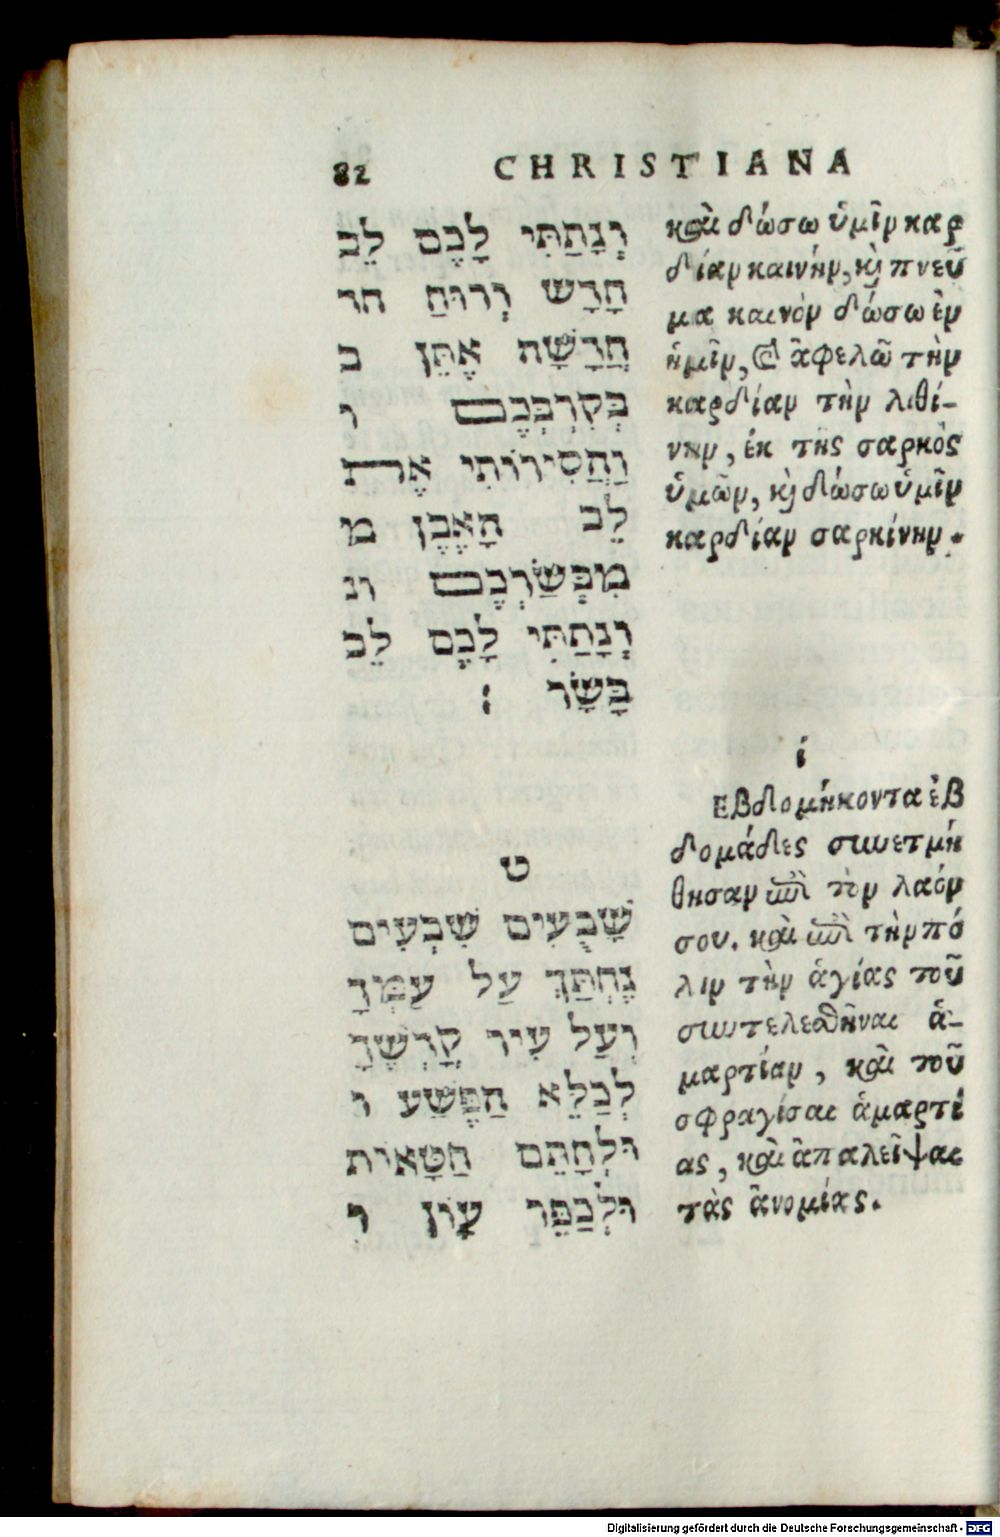 82 CHRISTIANA
וְנָתַתִּי לָכֶם לֵב
חָדָש וְרוּחַ חד
חֲדָשָׁה אֶתֵּן ב
בְּקִרְבְּכֶם ו
וַהֲסִירוֹתִי אֶת
לֵב הָאֶבֶן מ
מִבְּשַׂרְכֶם ונ
וְנָתַתִּי לָכֶם לֵב
בָּשָׂר :
ט
שָׁבֻעִים שִׁבְעִים
נֶחְתַּךְ עַל עַמְּךָ
וְעַל עִיר קָדְשֶׁךָ
לְכַלֵא הַפֶּשַׁע ו
וּלְחָתֵם חַטָּאות
וּלְכַפֵּר עָוֹן וּ
καὶ δώσω ὑμῖν καρ
δίαν καινήν, καὶ πνεῦ
μα καινὸν δώσω ἐν
ἡμῖν, καὶ ἀφελῶ τὴν
καρδίαν τὴν λιθί-
νην, ἐκ τῆς σαρκὸς
ὑμῶν, καὶ δώσω ὑμῖν
καρδίαν σαρκίνην.
ί
Εβδομήκοντα ἑβ
δομάδες συνετμή
θησαν ἐπὶ τὸν λαόν
σου. καὶ ἐπὶ τὴν πό
λιν τὴν ἁγίας τοῦ
συντελεσθῆναι ἁ-
μαρτίαν, καὶ τοῦ
σφραγίσαι ἁμαρτί
ας, καὶ ἀπαλεῖψαι
τὰς ἀνομίας.
Digitalisierung gefördert durch die Deutsche Forschungsgemeinschaft - DFG